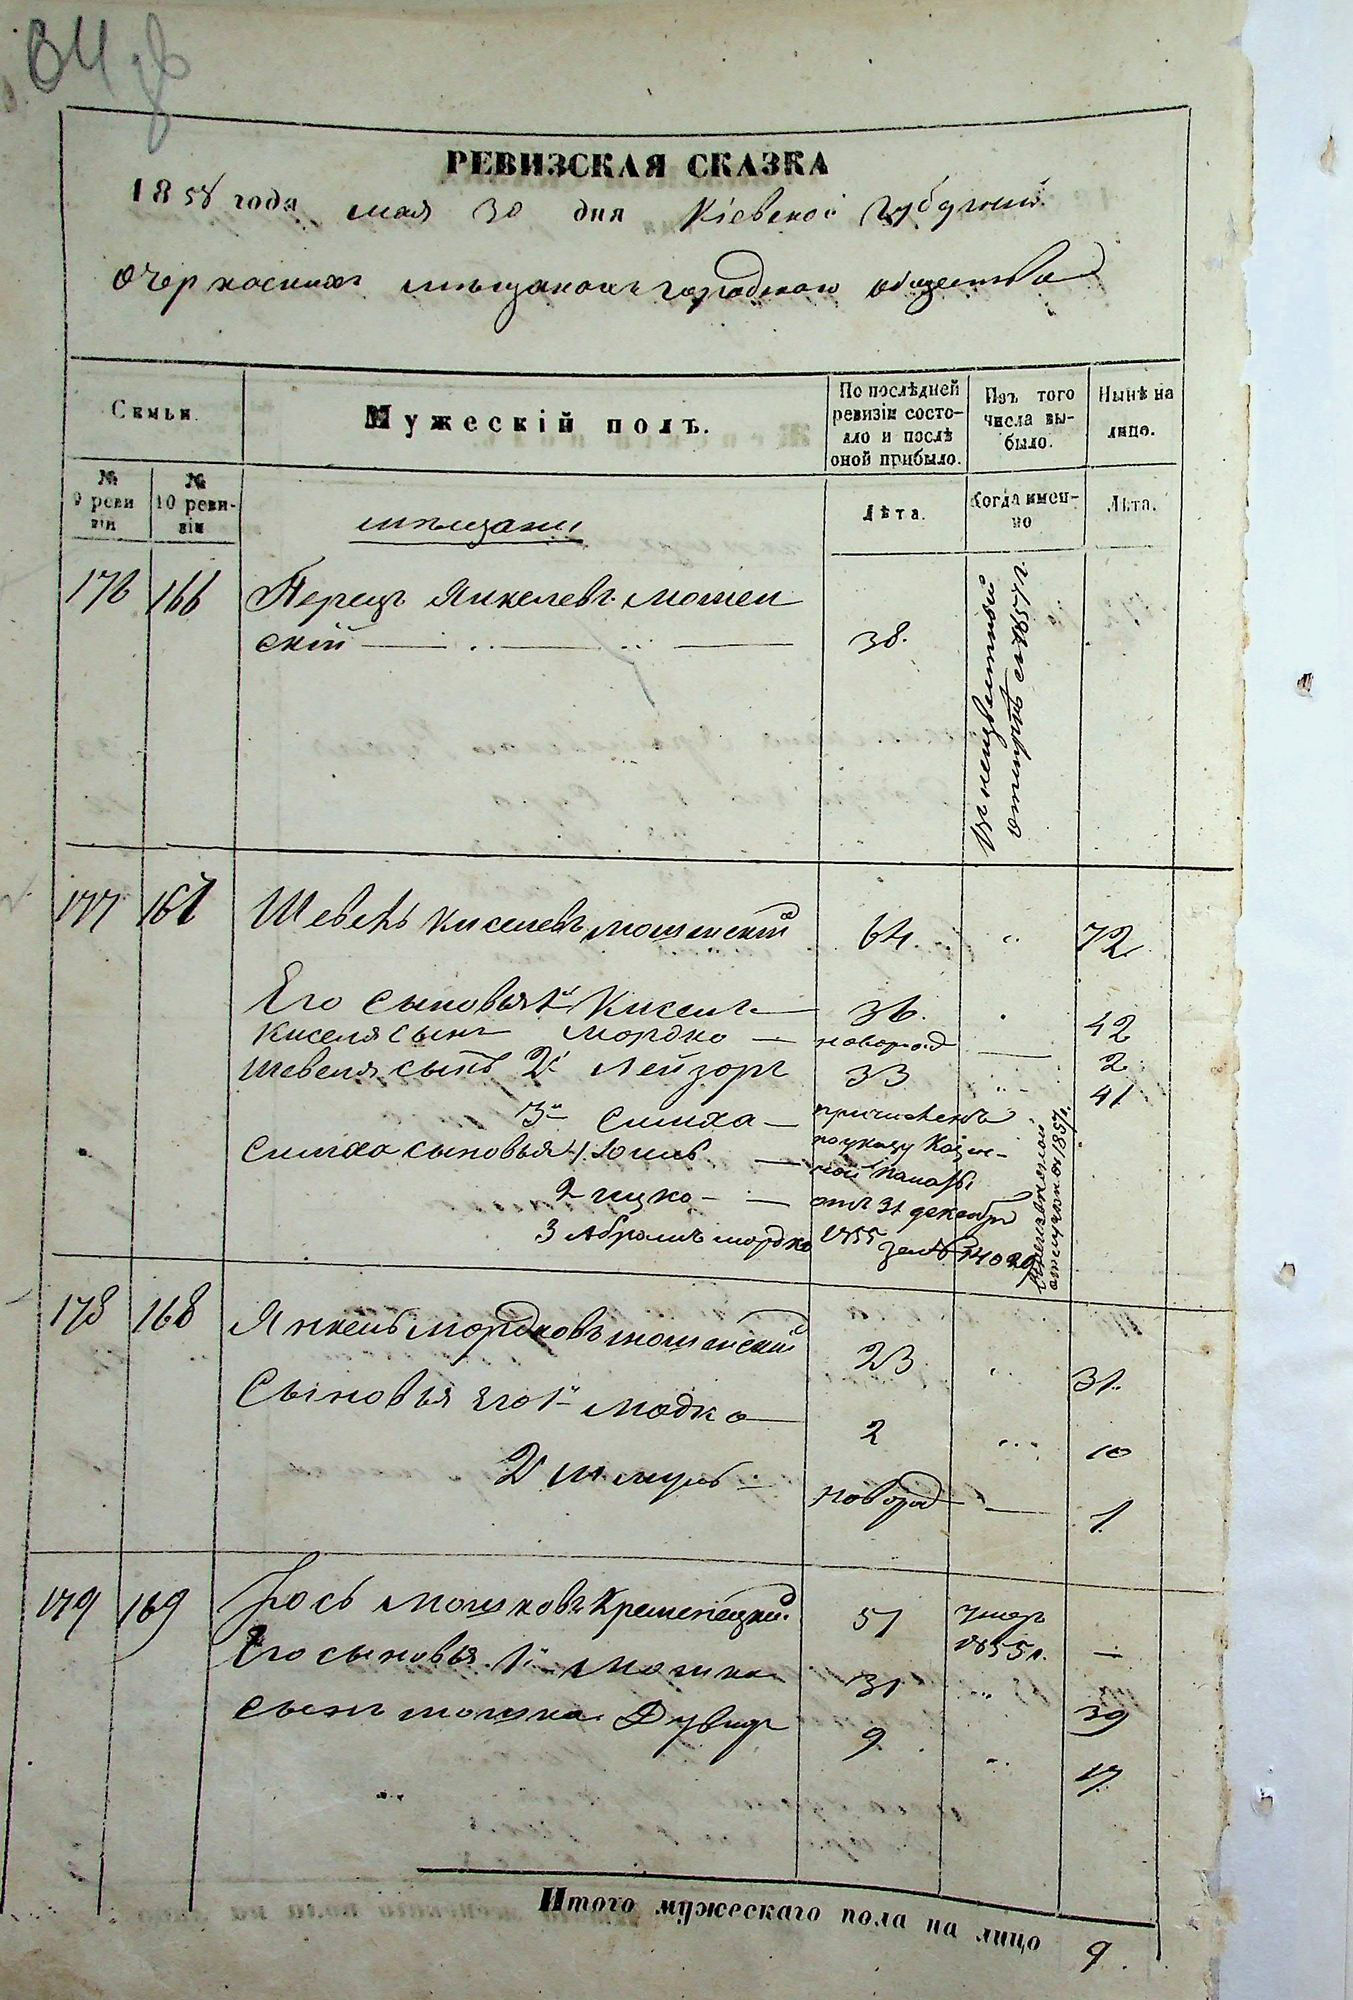 РЕВИЗСКАЯ СКАЗКА
1858 года мая 30 дня Кіевской Губерніи
О Черкаскихъ мѣщанахъ городскаго общества
Семьи.
Мужескій полъ.
По послѣдней ревизіи состояло и послѣ оной прибыло.
Изъ того числа выбыло.
Нынѣ на лицо.
№ 9 ревизіи
№ 10 ревизіи
мѣщане
Лѣта.
Когда именно
Лѣта.
176 166 Перецъ Янкелевъ Мошен
скій 38. въ неизвѣстной отлучкѣ съ 1857 г.
177 167 Шевель Киселевъ Мошенскій 64 72
Его сыновья 1й Кисель 36. 42
Киселя сынъ Мордко новород 2
Шевеля сынъ 2й Лейзоръ 33 41
3й Симха причисленъ
Симха сыновья 1 Юшь по указу Казен-
2 Ицко ной палаты
3 Абрамъ Мордко отъ 31 декабря
1855 за №
178 168 Янкель Мордковъ Мошенскій 23 31.
Сыновья его 1й Модко 2 10
2й Шмуль новорож 1
179 169 Іось Мошковъ Кременецкій. 51 умеръ 1855 г. —
Его сыновья 1й Мошко 31 39
сынъ Мошка Дувидъ 9 17
Итого мужескаго пола на лицо 9.